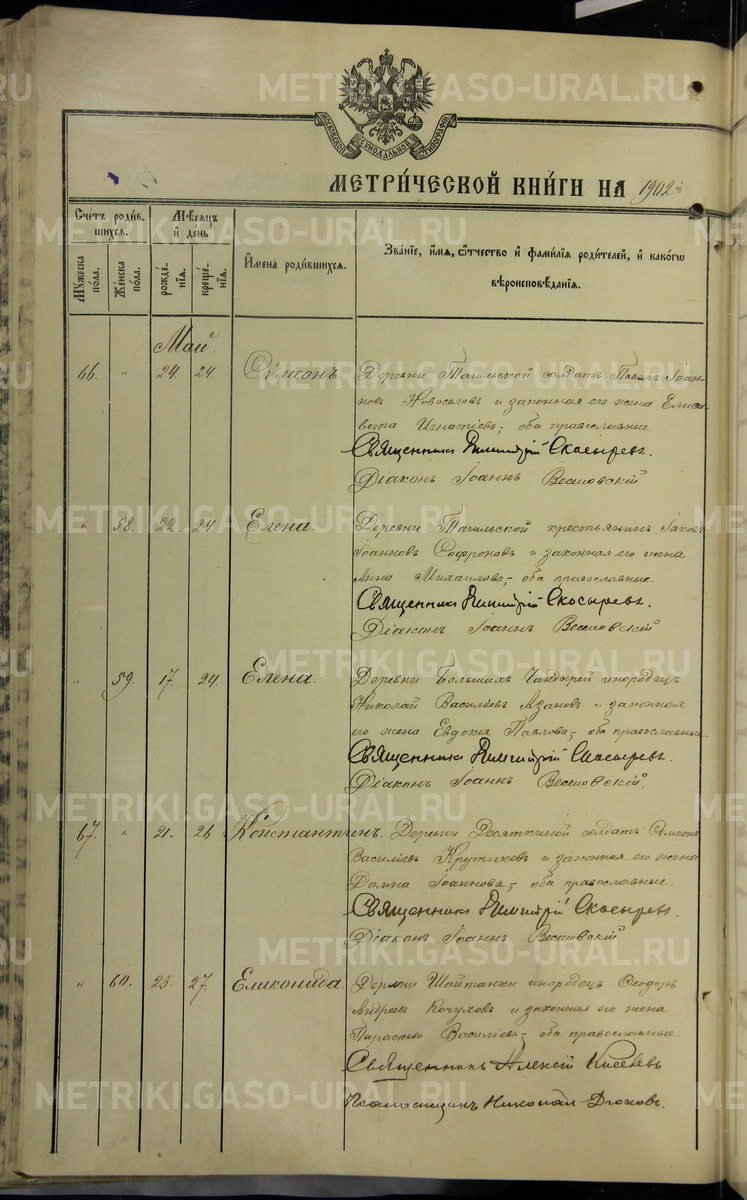 METRIKI.GASO-URAL.RU
МОСКОВСКОЙ СУНОДАЛЬНОЙ ТИПОГРАФІИ
МЕТРИ́ЧЕСКОЙ КНИ́ГИ НА 1902й
Счетъ роди́вшихся.
Мѣсяцъ и҆ де́нь
Му́жеска по́ла.
Же́нска по́ла.
рожде́нія.
креще́нія.
И҆мена роди́вшихся.
Зва́ніе, и҆́мя, ѻ҆́тчество и҆ фами́лія роди́телей, и҆ како́гѡ вѣроисповѣ́данія.
Май.
66. " 24 24 Сѵмеонъ. Деревни Тагильской солдатъ Павелъ Іоан-
новъ Новоселовъ и законная его жена Елиса-
вета Игнатіева, оба православные.
Священникъ Димитрій Скосыревъ.
Діаконъ Іоаннъ
" 58. 22. 24 Елена. Деревни Тагильской крестьянинъ Іаковъ
Іоанновъ Софроновъ и законная его жена
Анна Михаилова, оба православные.
Священникъ Димитрій Скосыревъ.
Діаконъ Іоаннъ
" 59. 17. 24. Елена. Деревни Большихъ инородецъ
Николай Василіевъ Азановъ и законная
его жена Евдокія Павлова, оба православные.
Священникъ Димитрій Скосыревъ.
Діаконъ Іоаннъ
67. " 21. 26 Константинъ. Деревни Десяткиной солдатъ Сѵмеонъ
Василіевъ Крутиковъ и законная его жена
Домна Іоаннова, оба православные.
Священникъ Димитрій Скосыревъ.
Діаконъ Іоаннъ
" 60. 23. 27. Еликонида. Деревни Шайтанки инородецъ Ѳеодоръ
Андреевъ и законная его жена
Параскева Василіева, оба православные.
Священникъ Алексій
Псаломщикъ Николай